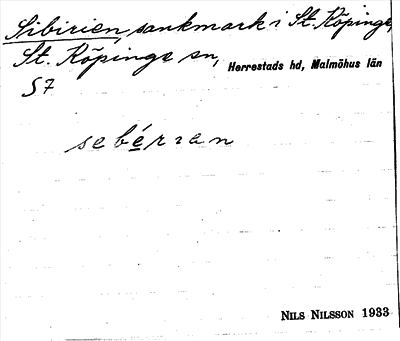 Sibirien, sankmark i St. Köpinge,
St. Köpinge sn, Herrestads hd, Malmöhus län
S7
sebérıan
NILS NILSSON 1933